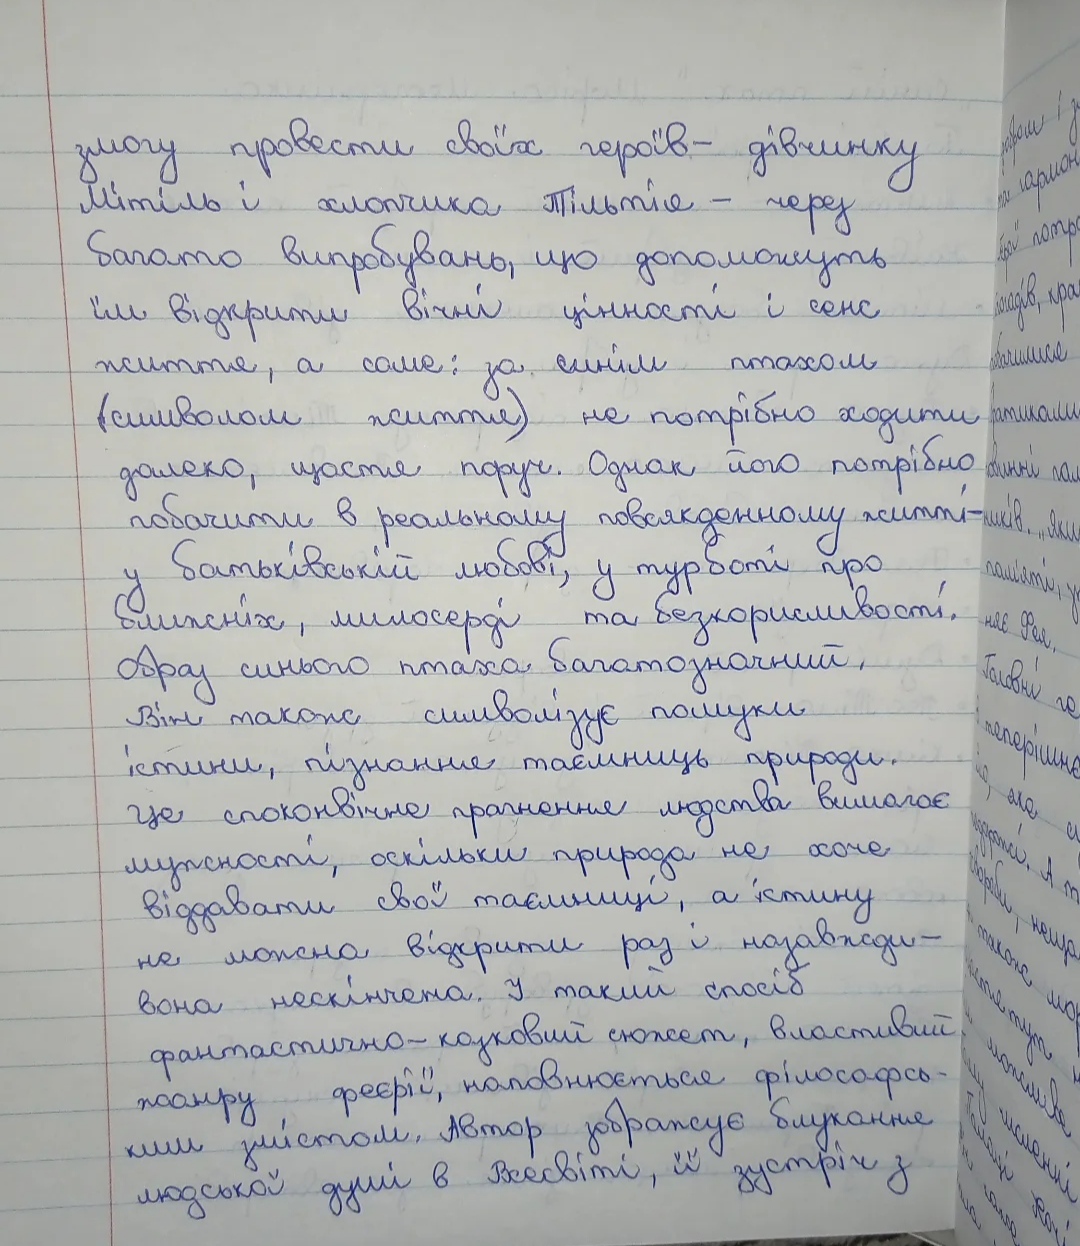 змогу провести своїх героїв – дівчинку
Мітіль і хлопчика Тільтіля – через
багато випробувань, що допоможуть
їм відкрити вічні цінності і сенс
життя, а саме: за синім птахом
(символом життя) не потрібно ходити
далеко, щастя поруч. Однак його потрібно
побачити в реальному повсякденному житті –
у батьківській любові, у турботі про
ближніх, милосерді та безкорисливості.
Образ синього птаха багатозначний.
Він також символізує пошуки
істини, пізнання таємниць природи.
Це споконвічне прагнення людства вимагає
мужності, оскільки природа не хоче
віддавати свої таємниці, а істину
не можна відкрити раз і назавжди –
вона нескінчена. У такий спосіб
фантастично-казковий сюжет, властивий
жанру феєрії, наповнюється філософсь-
ким змістом. Автор зображує блукання
людської душі в Всесвіті, її зустріч з